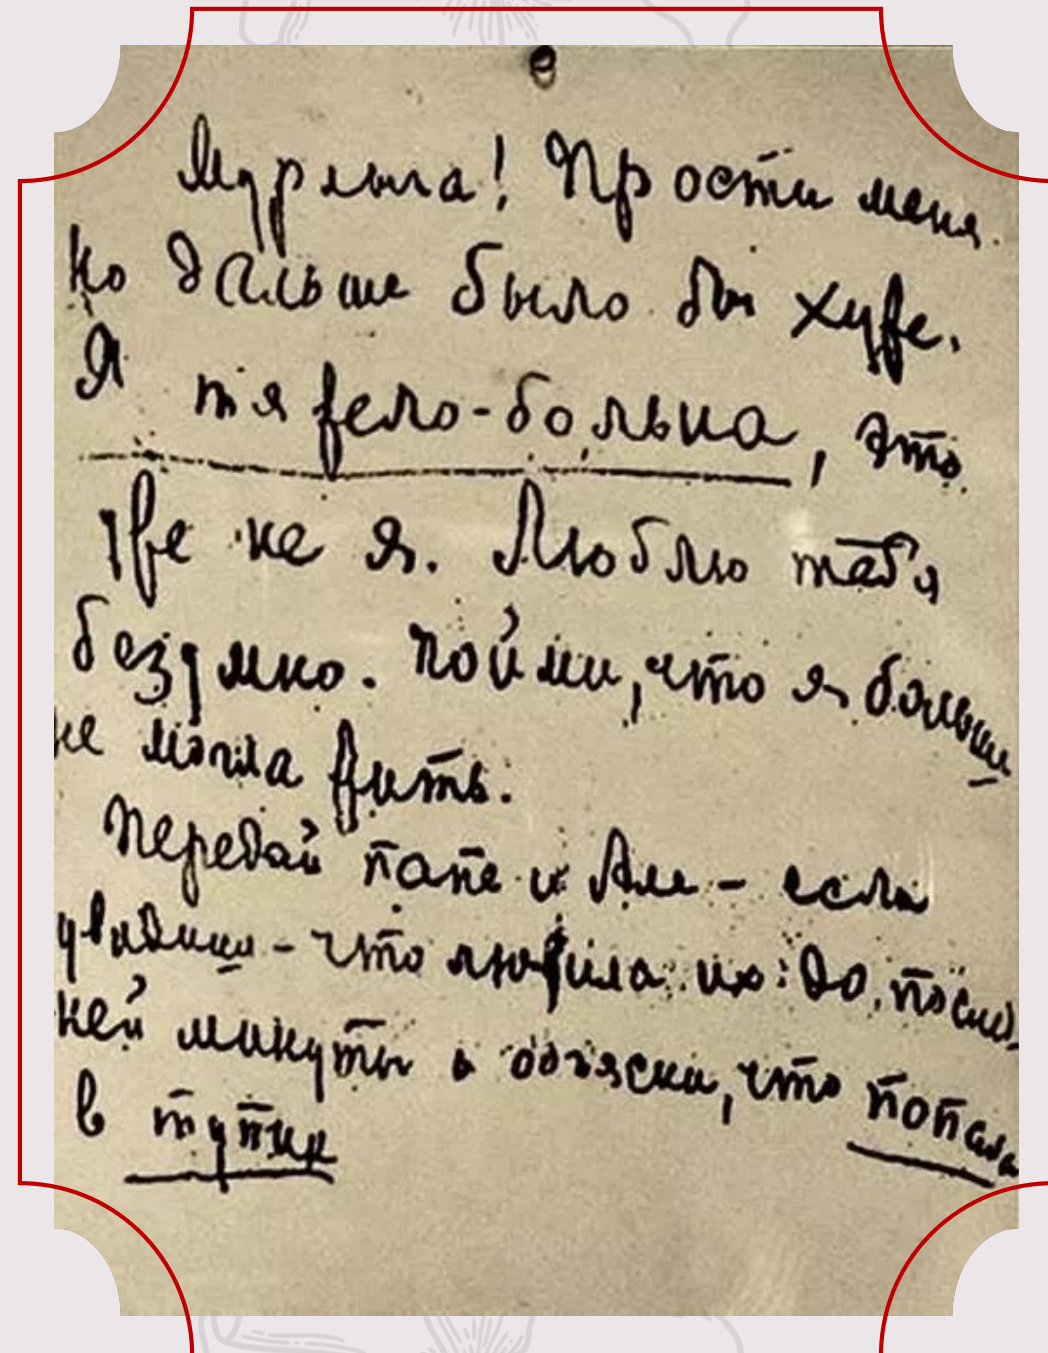 Мурлыга! Прости меня
Но дальше было бы хуже.
Я тяжело-больна, это
уже не я. Люблю тебя
безумно. Пойми, что я больше
не могла жить.
Передай папе и Але – если
увидишь – что любила их до послед-
ней минуты и объясни, что попала
в тупик